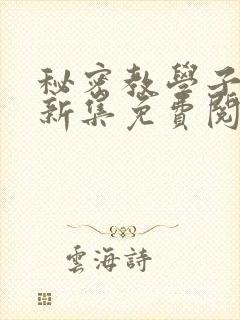 秘密教學子
新集免費閱
雲海詩